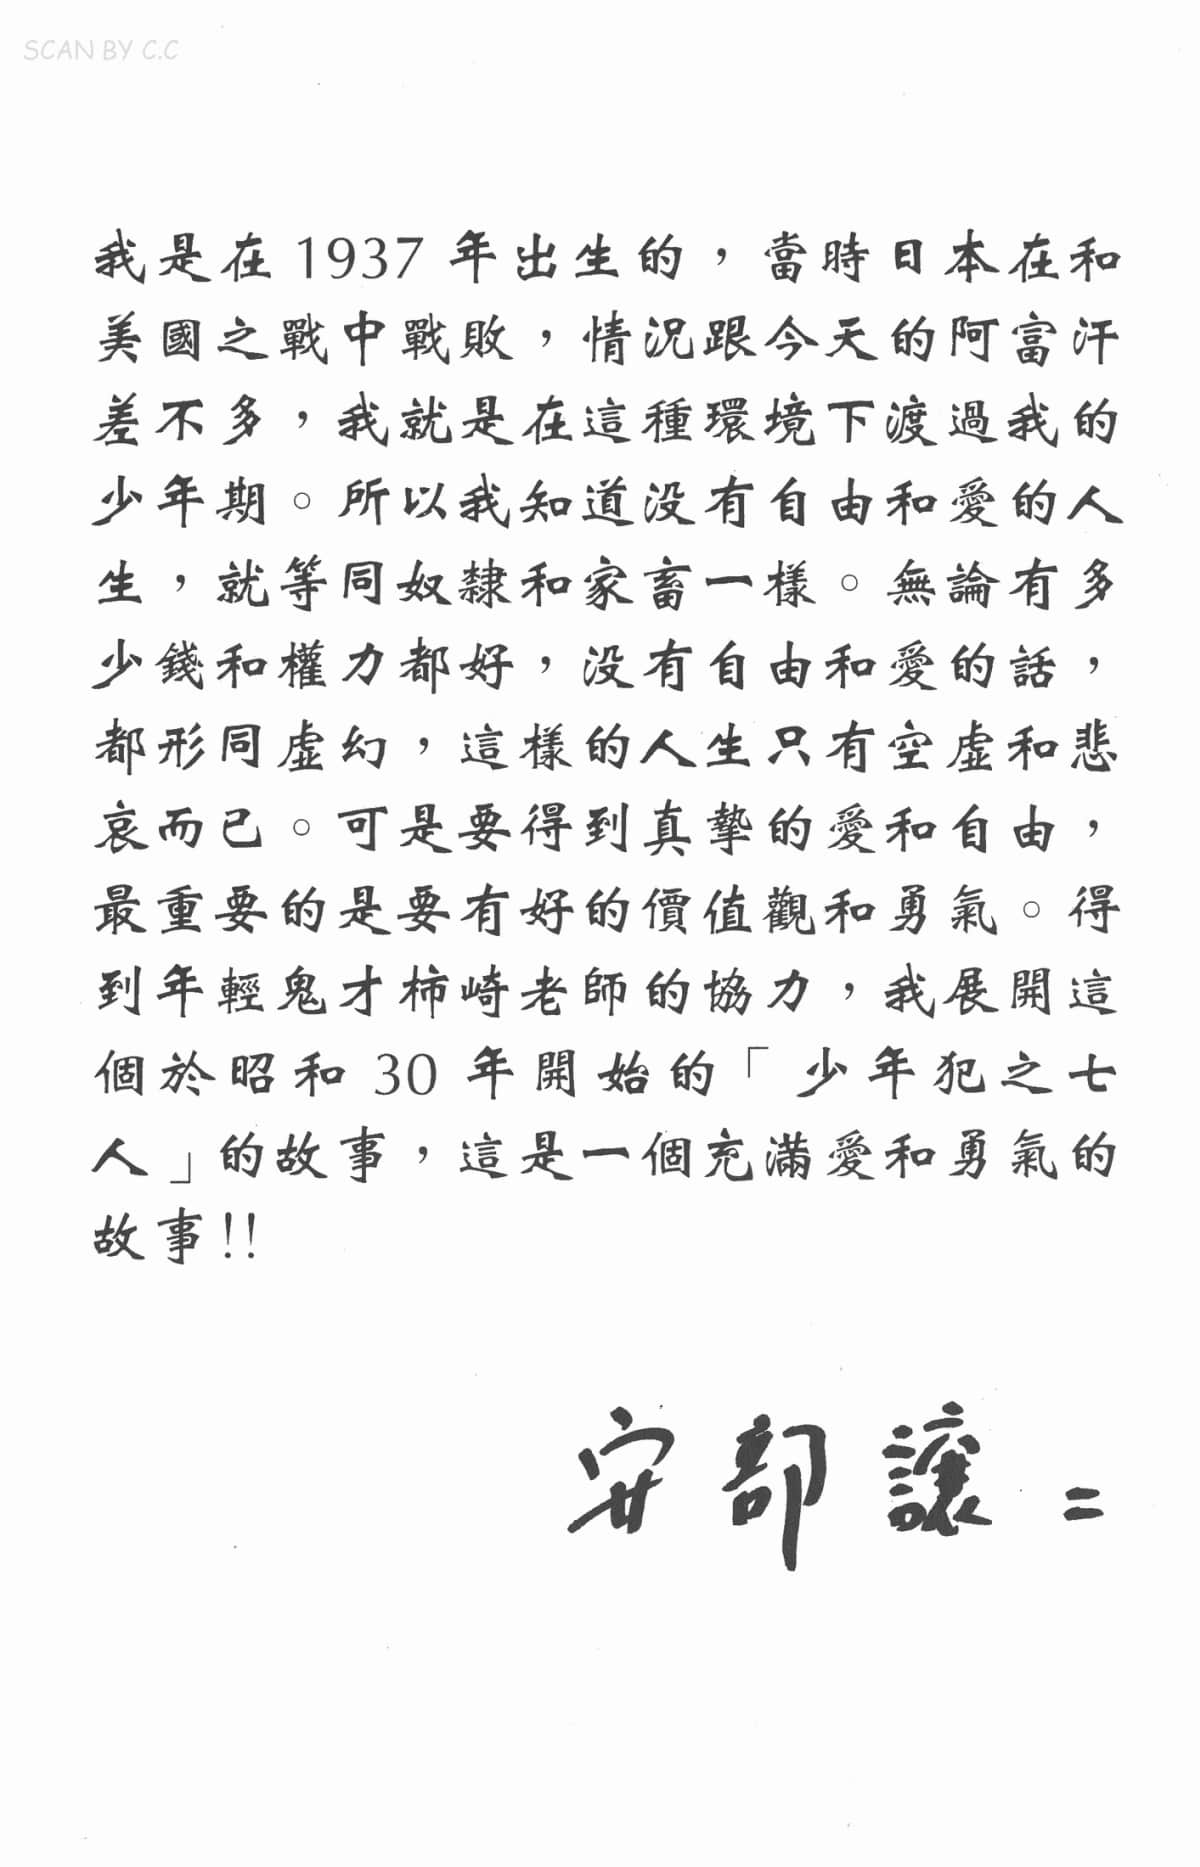 SCAN BY C.C
我是在1937年出生的，當時日本在和
美國之戰中戰敗，情況跟今天的阿富汗
差不多，我就是在這種環境下渡過我的
少年期。所以我知道沒有自由和愛的人
生，就等同奴隸和家畜一樣。無論有多
少錢和權力都好，沒有自由和愛的話，
都形同虛幻，這樣的人生只有空虛和悲
哀而已。可是要得到真摯的愛和自由，
最重要的是要有好的價值觀和勇氣。得
到年輕鬼才柿崎老師的協力，我展開這
個於昭和30年開始的「少年犯之七
人」的故事，這是一個充滿愛和勇氣的
故事!!
安部譲二